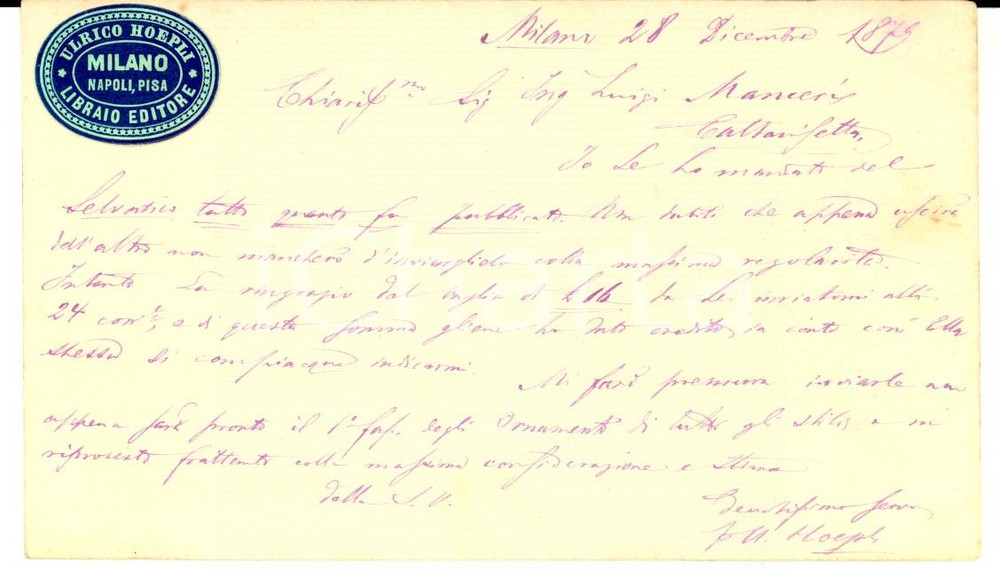 ULRICO HOEPLI
MILANO
NAPOLI, PISA
LIBRAIO EDITORE
Milano 28 Dicembre 1879
Chiariss.mo Sig Ing Luigi Manceri
Caltanisetta,
Io Le ho mandato del
Selvatico tutto quanto fu pubblicato. Non dubiti che appena uscirà
dell'altro non mancherò d'inviarglielo colla massima regolarità.
Intanto La ringrazio del vaglia di £ 16 da Lei inviatomi alli
24 corr.e, e di questa somma gliene ho dato credito in conto com' Ella
stessa si compiacque indicarmi.
Mi farò premura inviarle non
appena sarà pronto il 1° fas. degli Ornamenti di tutti gli stili e mi
riprotesto frattanto colla massima considerazione e stima
della S. V.
Devotissimo servo
U. Hoepli